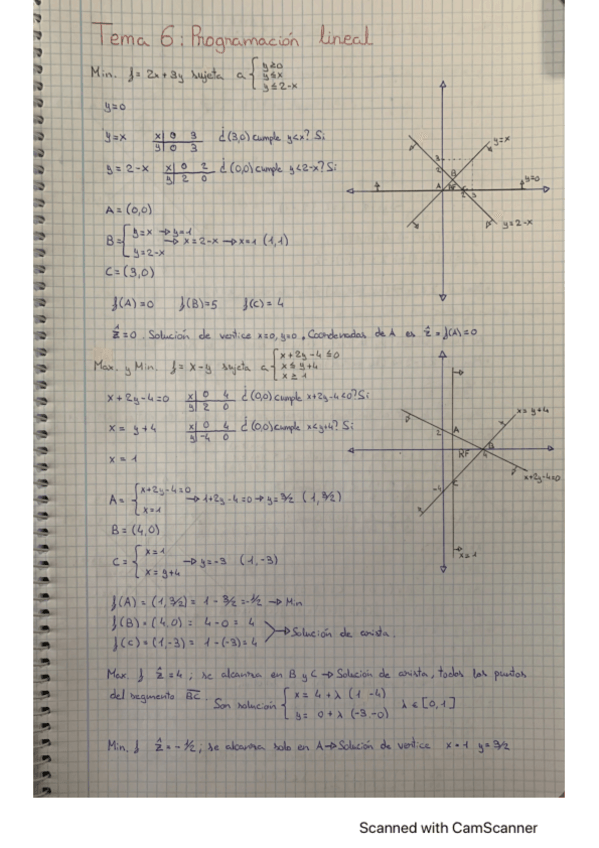 Tema 6: Programación lineal
Min. f = 2x + 3y sujeta a { y ≥ 0
y ≤ x
y ≤ 2-x
y=0
y=x x| 0 3 y| 0 3 ¿(3,0) cumple y<x? Si
y = 2-x x| 0 2 y| 2 0 ¿(0,0) cumple y<2-x? Si
A = (0,0)
B = { y=x → y=1
→ x=2-x → x=1 (1,1)
y=2-x
C = (3,0)
f(A) = 0 f(B)=5 f(C) = 4
ẑ=0. Solución de vertice x=0, y=0, Coordenadas de A es ẑ = f(A)=0
Max. y Min. f = x-y sujeta a { x + 2y - 4 ≤ 0
x ≤ y+4
x ≥ 1
x + 2y - 4 = 0 x| 0 4 y| 2 0 ¿(0,0) cumple x+2y-4<0? Si
x = y+4 x| 0 4 y| -4 0 ¿(0,0) cumple x<y+4? Si
x = 1
A = { x+2y-4=0
x=1 → 1+2y-4=0 → y=3/2 (1, 3/2)
B = (4,0)
C = { x=1
x=y+4 → y=-3 (1,-3)
f(A) = (1, 3/2) = 1 - 3/2 = -1/2 → Min
f(B) = (4,0) = 4-0 = 4
f(C) = (1,-3) = 1-(-3) = 4 → Solución de arista.
Max. f ẑ=4; se alcanza en B y C → Solución de arista, todos los puntos
del segmento BC. Son solución { x = 4 + λ (1 -4)
y = 0 + λ (-3 -0) λ ∈ [0,1]
Min. f ẑ = -1/2; se alcanza solo en A → Solución de vertice x=1 y=3/2
y=x
y=0
y=2-x
3
2
A
B
RF
C
2
3
x=y+4
x+2y-4=0
x=1
2
A
RF
B
4
-4
C
Scanned with CamScanner